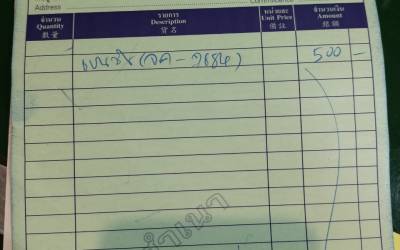 Address
จำนวน รายการ หน่วยละ จำนวนเงิน
Quantity Description Unit Price Amount
數量 貨名 備註 銀額
เบนซิน (จค - 2684) 500 -
สำเนา